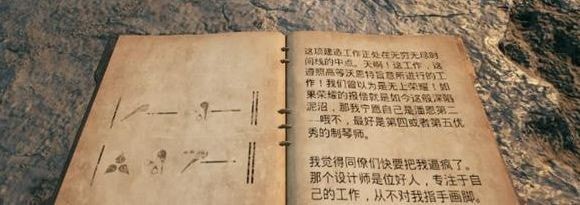 这项建造工作正处在无穷无尽时
间线的中点。天啊！这工作，这
遵照高等沃恩特旨意所进行的工
作！我们曾以为是无上荣耀！如
果荣耀的报偿就是如今这般深陷
泥沼，那我宁愿自己是潘恩第二
——哦不，最好是第四或者第五优
秀的制琴师。
我觉得同僚们快要把我逼疯了。
那个设计师是位好人，专注于自
己的工作，从不对我指手画脚。